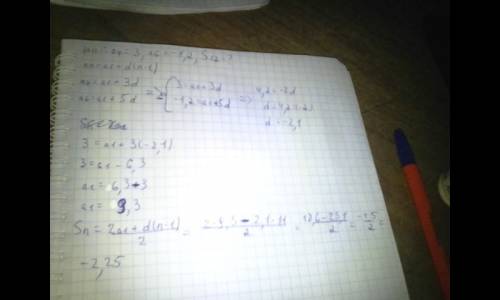 a4=3, a6=-1,2, S12=?
an=a1+d(n-1)
a4=a1+3d
a6=a1+5d
=> { 3=a1+3d
-1,2=a1+5d =>
4,2=-2d
d=4,2:(-2)
d=-2,1
3=a1+3(-2,1)
3=a1-6,3
a1=6,3+3
a1=9,3
Sn = 2a1+d(n-1) / 2 = 2·9,3-2,1·11 / 2 = 18,6-23,1 / 2 = -4,5 / 2 =
-2,25